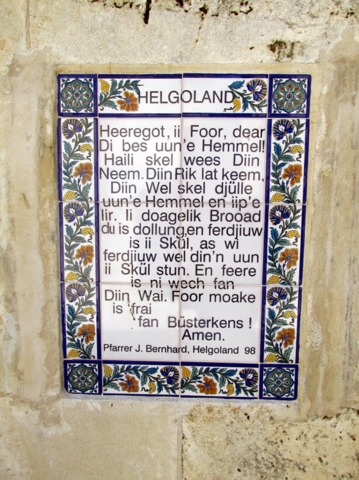 HELGOLAND
Heeregot, ii Foor, dear
Di bes uun'e Hemmel!
Haili skel wees Diin
Neem. Diin Rik lat keem,
Diin Wel skel djülle
uun'e Hemmel en iip'e
lir. Ii doagelik Brooad
du is dollung, en ferdjiuw
is ii Skül, as wi
ferdjiuw wel din'n uun
ii Skül stun. En feere
is ni wech fan
Diin Wai. Foor moake
is frai
fan Büsterkens !
Amen.
Pfarrer J. Bernhard, Helgoland 98